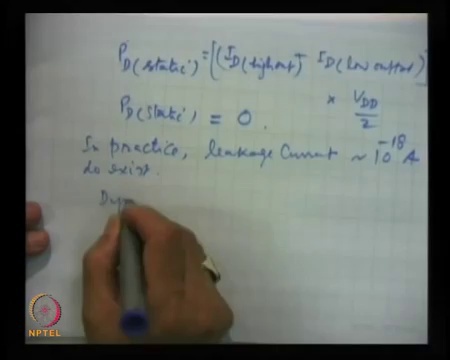 P_D(static) = [(I_D(high out) + I_D(low output)]
× V_DD/2
P_D(static) = 0.
In practice, leakage current ~ 10^-18 A
do exist.
Dyn
NPTEL